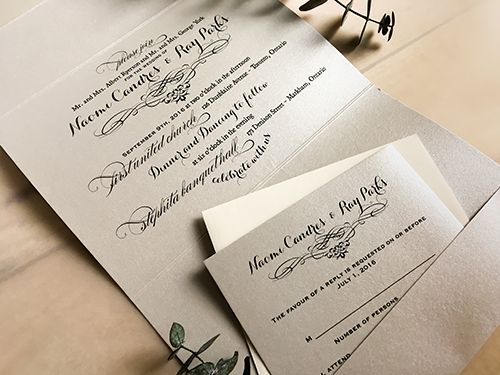 please join
Mr. and Mrs. Albert Ryerson and Mr. and Mrs. George York
for the wedding of
Naome Candres & Ray Parks
September 9th, 2016 at two o'clock in the afternoon
First united church
128 Dunblaine Avenue - Toronto, Ontario
Dinner and Dancing to follow
at six o'clock in the evening
Stephita banquet hall
137 Denison Street - Markham, Ontario
celebrate with us
Naome Candres & Ray Parks
The favour of a reply is requested on or before
July 1, 2016
M
Number of persons
attend